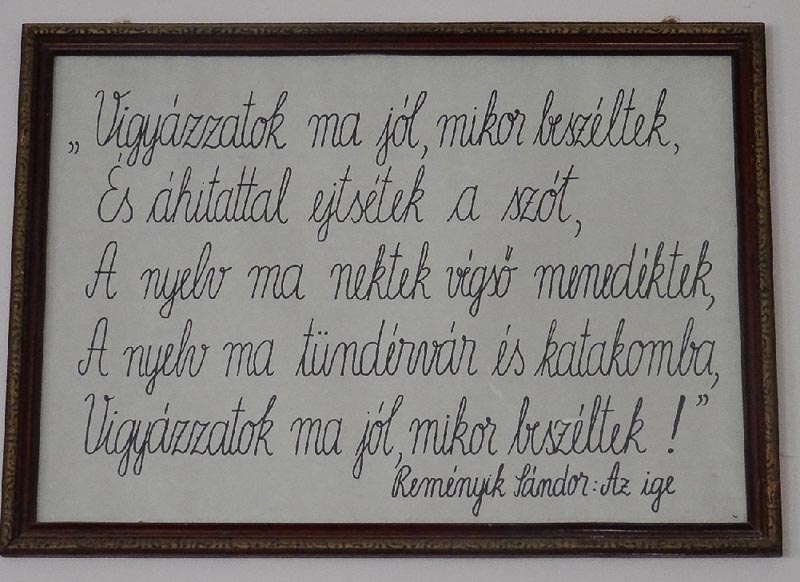 „Vigyázzatok ma jól, mikor beszéltek,
És áhitattal ejtsétek a szót,
A nyelv ma nektek végső menedéktek,
A nyelv ma tündérvár és katakomba,
Vigyázzatok ma jól, mikor beszéltek!”
Reményik Sándor: Az ige